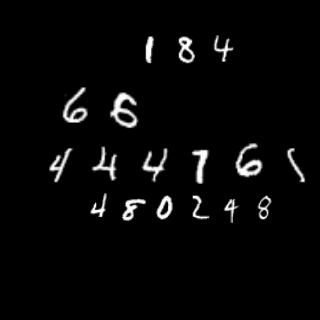 184
66
444761
480248